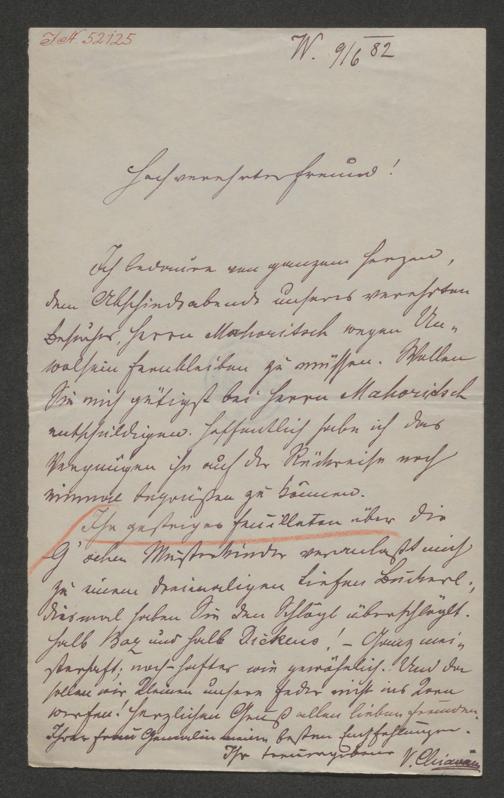 IN 52125
W. 9/6 82
Hochverehrter Freund!
Ich bedaure von ganzem Herzen,
dem Abschiedsabende unseres verehrten
Besuches, Herrn Mahoritsch wegen Un-
wolsein fernbleiben zu müssen. Wollen
Sie mich gütigst bei Herrn Mahoritsch
entschuldigen. Hoffentlich habe ich das
Vergnügen ihn auf der Rückreise noch
einmal begrüßen zu können.
Ihr gestriges Feuilleton über die
G'schen Musterkinder veranlaßt mich
zu einem dreimaligen tiefen Buckerl;
diesmal haben Sie den Schlögl überschlöglt.
Halb Boz und halb Dickens! – Ganz mei-
sterhaft, noch wie gewöhnlich. Und da
sollen wir Kleinen unsere Feder nicht ins Zorn
werfen! Herzlichen Gruß allen lieben Freunden.
Ihrer Frau Gemalin meine besten Empfehlungen.
Ihr treuergebener V. Chiavacci